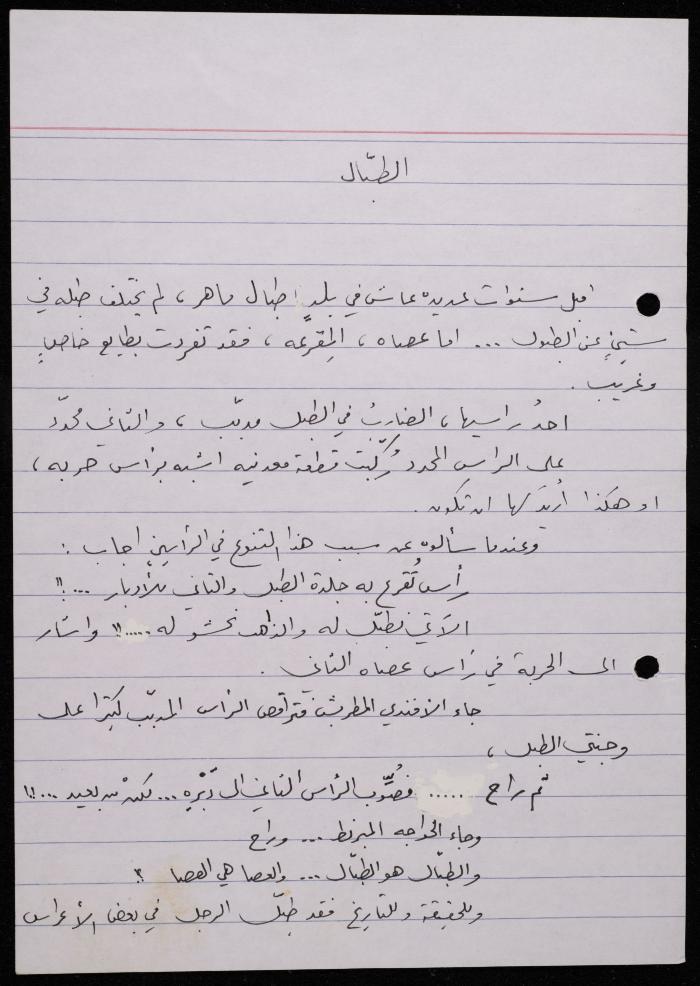 الطبّال
قبل سنوات عديده عاش في بلدٍ طبال ماهر، لم يختلف طبله في
شيئٍ عن الطبول ... اما عصاه، المِقرعه، فقد تفردت بطابع خاصٍ
وغريب.
احدُ راسيها، الضاربُ في الطبل مدبّب، والثاني محدّد
على الراس المحدد رُكّبت قطعة معدنيه اشبه برأس حربه،
او هكذا أُريدَ لها ان تكون.
وعندما سألوه عن سبب هذا التنوع في الرأسين اجاب:
رأس تُقرع به جلدة الطبل والثاني للأدبار ...!!
الآتي نطبّل له والذاهب نحشو له .....!! واشار
الى الحربة في رأس عصاه الثاني.
جاء الافندي المطربش فتراقص الراس المدبّب كثيرا على
وجنتي الطبل،
ثم راح ...... فصُوِّب الرأس الثاني الى دُبْرِه ... لكنْ من بعيد ...!!
وجاء الخواجه المبرنط ... وراح
والطبّال هو الطبّال ... والعصا هي العصا ؟
وللحقيقة وللتاريخ فقد طبّل الرجل في بعض الأعراس